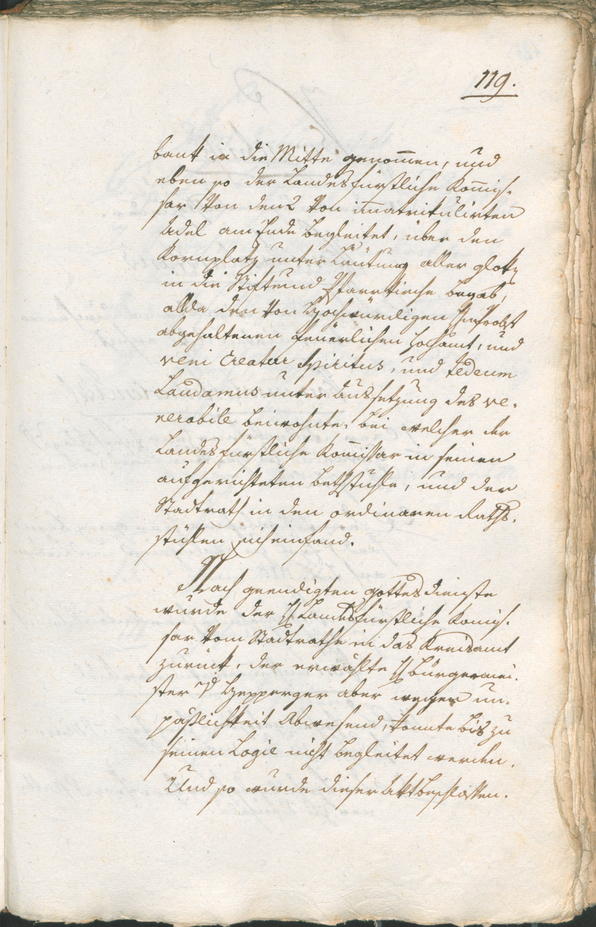 119.
bank in die Mitte genommen, und
eben so der Landesfürstliche Kom̄is-
sar von den 2 von im̄atrikulirten
Adel am Ende begleitet, über den
Kornplatz unter Läutung aller Glok
in die Stift und Pfarrkirche begab,
allda dem von Hochwürdigen H Probst
abgehaltenen feuerlichen Hochamt, und
veni Creator Spiritus, und tedeum
Laudamus unter Aussetzung des ve-
nerabile beiwohnte, bei welcher der
Landesfürstliche Kom̄issar in seinen
aufgerichteten Bethstuhle, und der
Stadtrath in den ordinairen Raths-
stühlen sich einfand.
Nach geendigten Gottesdienste
wurde der H Landesfürstliche Kom̄is-
sar vom Stadtrathe in das Kreisamt
zurück, der erwählte H Bürgermei-
ster v Hepperger aber wegen un-
päßlichkeit Abwesend, konnte bis zu
seinen Logie nicht begleitet werden.
Und so wurde dieser Akt beschlossen.